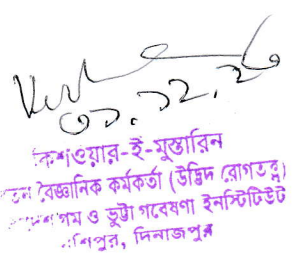 ৩১.১২.২০
কিশওয়ার-ই-মুস্তারিন
বৈজ্ঞানিক কর্মকর্তা (উদ্ভিদ রোগতত্ত্ব)
গম ও ভুট্টা গবেষণা ইনস্টিটিউট
দিনাজপুর